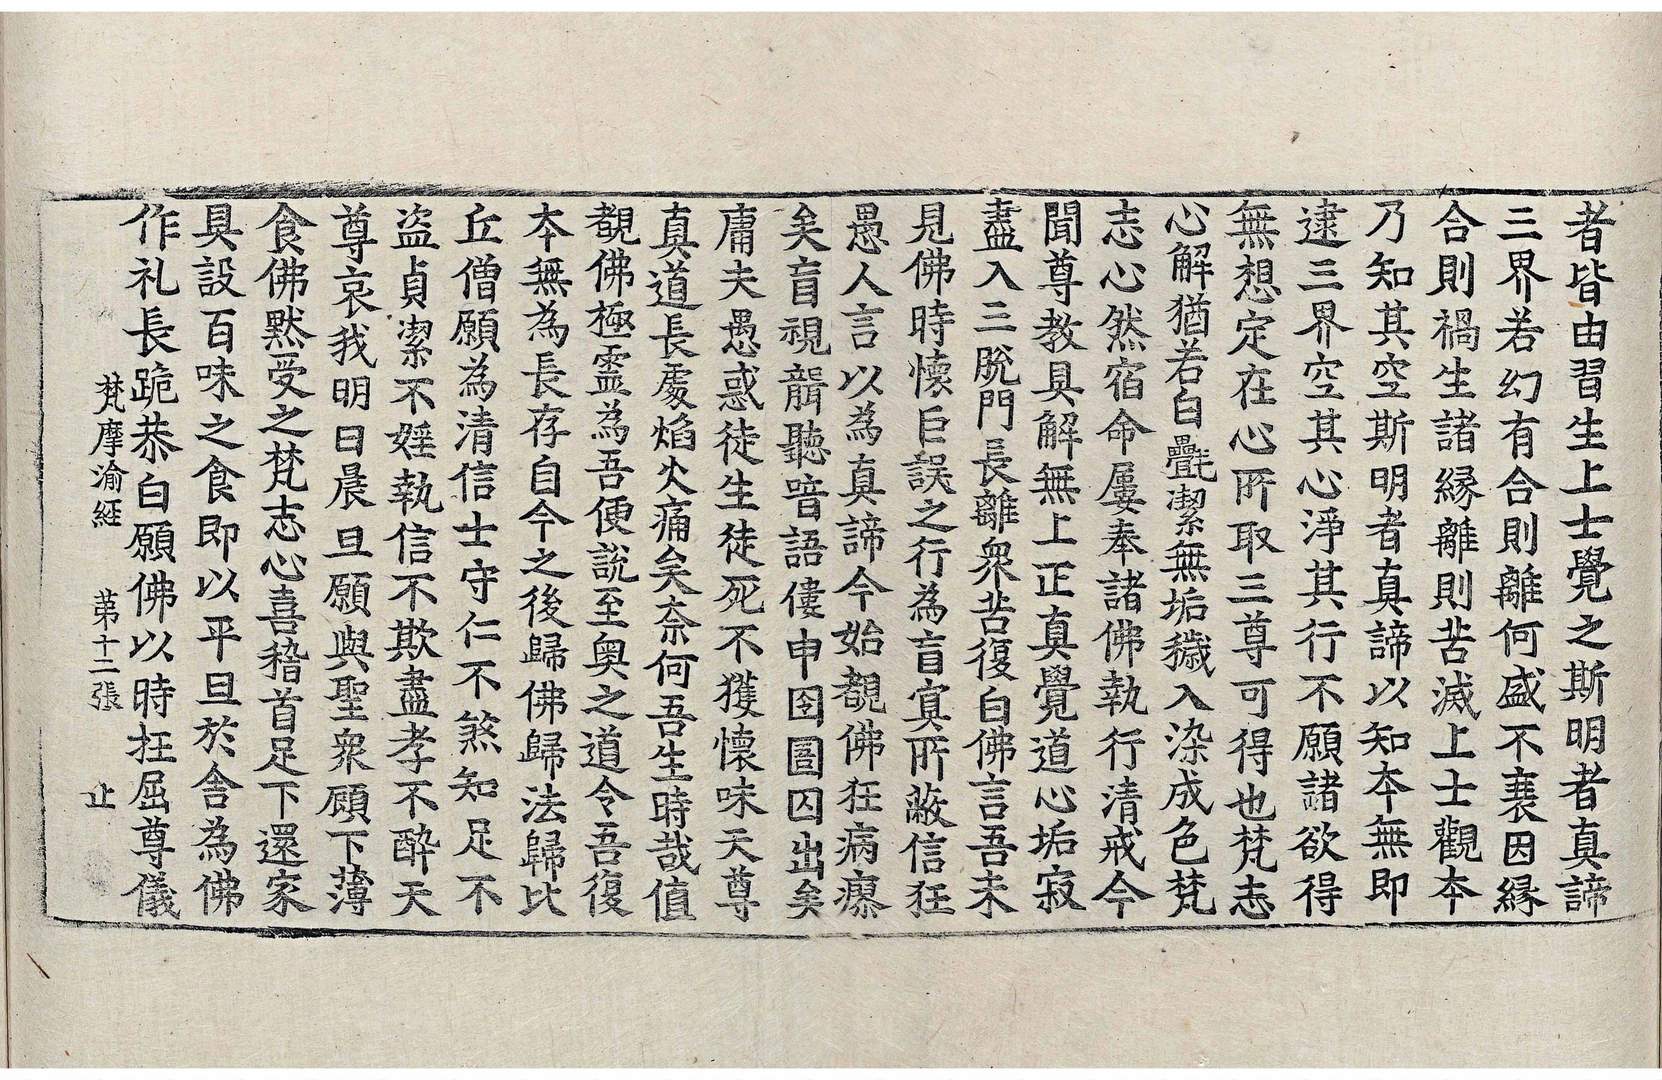 者皆由習生上士覺之斯明者真諦
三界若幻有合則離何盛不衰因縁
合則禍生諸縁離則苦滅上士觀本
乃知其空斯明者真諦以知本無即
逮三界空其心淨其行不願諸欲得
無想定在心所取三尊可得也梵志
心解猶若白㲲潔無垢穢入染成色梵
志心然宿命屢奉諸佛執行清戒今
聞尊教具解無上正真覺道心垢寂
盡入三脫門長離衆苦復白佛言吾未
見佛時懷巨誤之行為盲冥所蔽信狂
愚人言以為真諦今始覩佛狂病瘳
矣盲視聾聽喑語僂申囹圄囚出矣
庸夫愚惑徒生徒死不獲懷味天尊
真道長處焰火痛矣奈何吾生時哉值
覩佛極靈為吾便說至奧之道令吾復
本無為長存自今之後歸佛歸法歸比
丘僧願為清信士守仁不煞知足不
盜貞潔不婬執信不欺盡孝不醉天
尊哀我明日晨旦願與聖衆頋下薄
食佛黙受之梵志心喜稽首足下還家
具設百味之食即以平旦於舍為佛
作礼長跪恭白願佛以時抂屈尊儀
梵摩渝經 第十二張 止